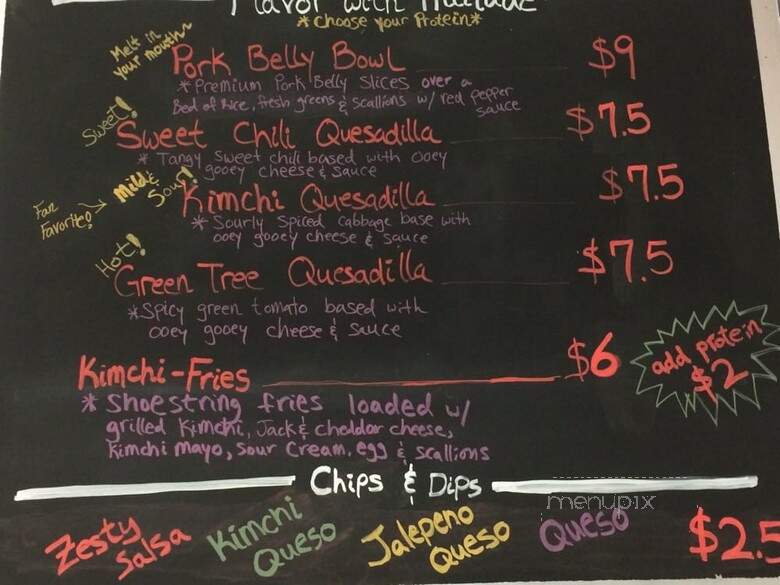 Flavor with Attitude
*Choose your Protein*
Melt in
your mouth~
Pork Belly Bowl $9
*Premium Pork Belly Slices over a
Bed of Rice, fresh greens & scallions w/ red pepper
sauce
Sweet!
Sweet Chili Quesadilla $7.5
* Tangy sweet chili based with ooey
gooey cheese & sauce
Fan
Favorite! → Mild &
Sour!
Kimchi Quesadilla $7.5
* Sourly Spiced cabbage base with
ooey gooey cheese & sauce
Hot!
Green Tree Quesadilla $7.5
*Spicy green tomato based with
ooey gooey cheese & sauce
Kimchi-Fries $6
add protein
$2
* Shoestring fries loaded w/
grilled Kimchi, Jack & cheddar cheese,
Kimchi mayo, sour cream, egg & scallions
Chips & Dips
menupix
Zesty
Salsa
Kimchi
Queso
Jalepeno
Queso
Queso
$2.5